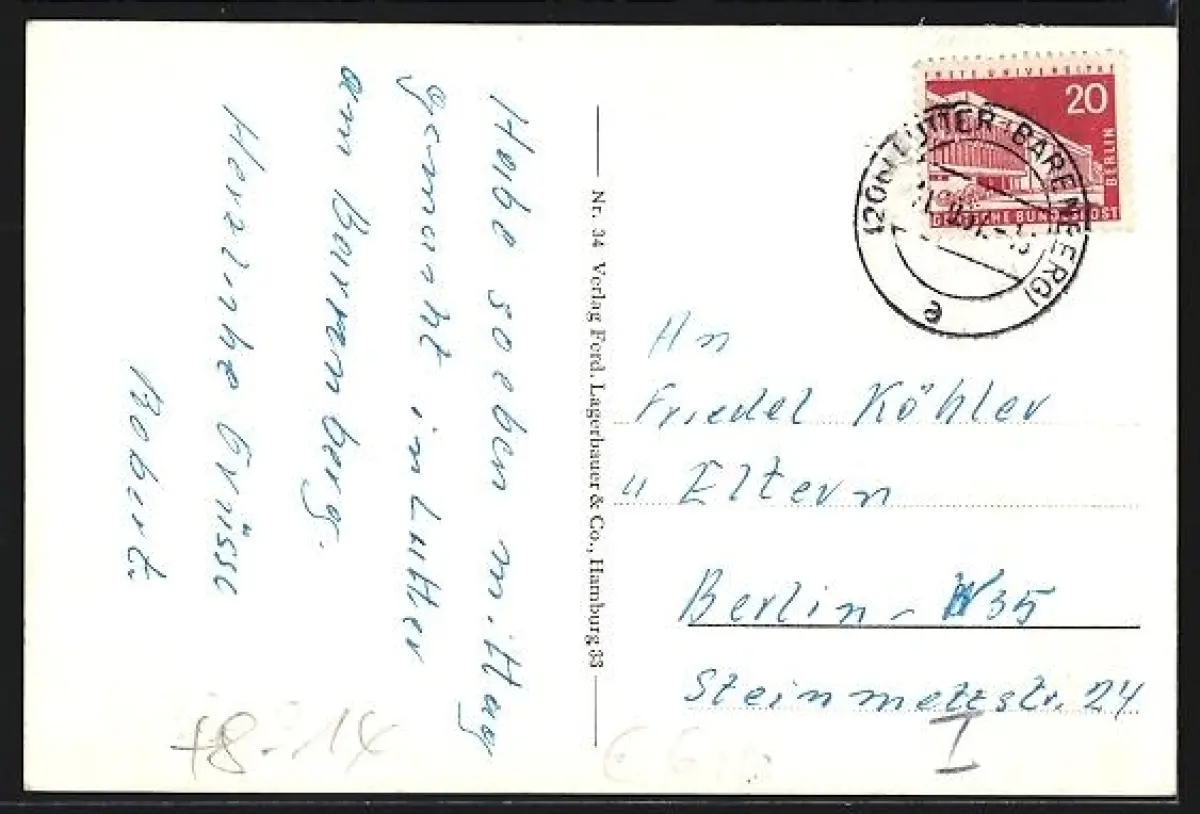 Habe soeben mittag
gemacht in Lutter
am barrenberg.
Herzliche Grüsse
Robert.
Nr. 34 Verlag Ferd. Lagerbauer & Co., Hamburg 33
20
BERLIN
DEUTSCHE BUNDESPOST
(20b) LUTTER (BARENBERG)
e
An
Friedel Köhler
u Eltern
Berlin - W35
Steinmetzstr. 24
I